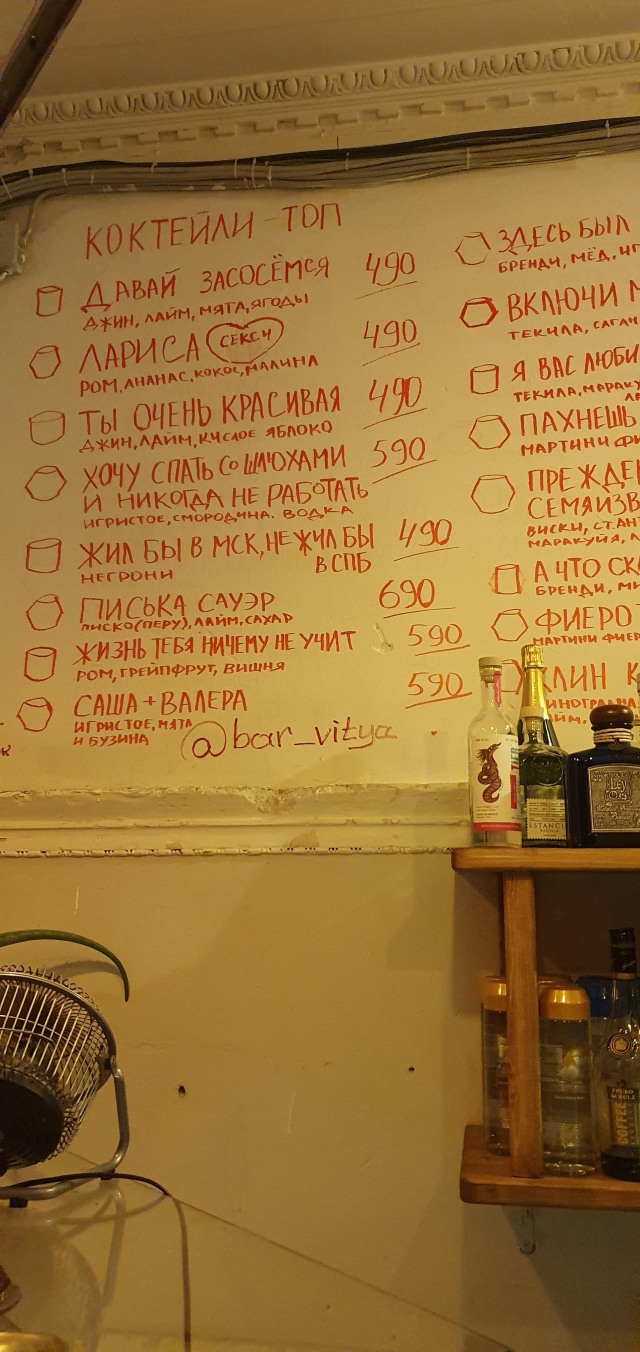 КОКТЕЙЛИ-ТОП
ДАВАЙ ЗАСОСЁМСЯ 490
ДЖИН, ЛАЙМ, МЯТА, ЯГОДЫ
ЛАРИСА СЕКСИ 490
РОМ, АНАНАС, КОКОС, МАЛИНА
ТЫ ОЧЕНЬ КРАСИВАЯ 490
ДЖИН, ЛАЙМ, КИСЛОЕ ЯБЛОКО
ХОЧУ СПАТЬ СО ШЛЮХАМИ 590
И НИКОГДА НЕ РАБОТАТЬ
ИГРИСТОЕ, СМОРОДИНА. ВОДКА
ЖИЛ БЫ В МСК, НЕ ЖИЛ БЫ 490
В СПБ
НЕГРОНИ
ПИСЬКА САУЭР 690
ПИСКО (ПЕРУ), ЛАЙМ, САХАР
ЖИЗНЬ ТЕБЯ НИЧЕМУ НЕ УЧИТ 590
РОМ, ГРЕЙПФРУТ, ВИШНЯ
САША + ВАЛЕРА 590
ИГРИСТОЕ, МЯТА
И БУЗИНА
@bar_vitya
ЗДЕСЬ БЫЛ
БРЕНДИ, МЁД,
ВКЛЮЧИ
ТЕКИЛА,
Я ВАС
ТЕКИЛА,
ПАХНЕШЬ
МАРТИНИ
ПРЕЖДЕ
ВИСКИ,
МАРАКУЙЯ,
А ЧТО
БРЕНДИ,
ФИЕРО
МАРТИНИ
COFFEE